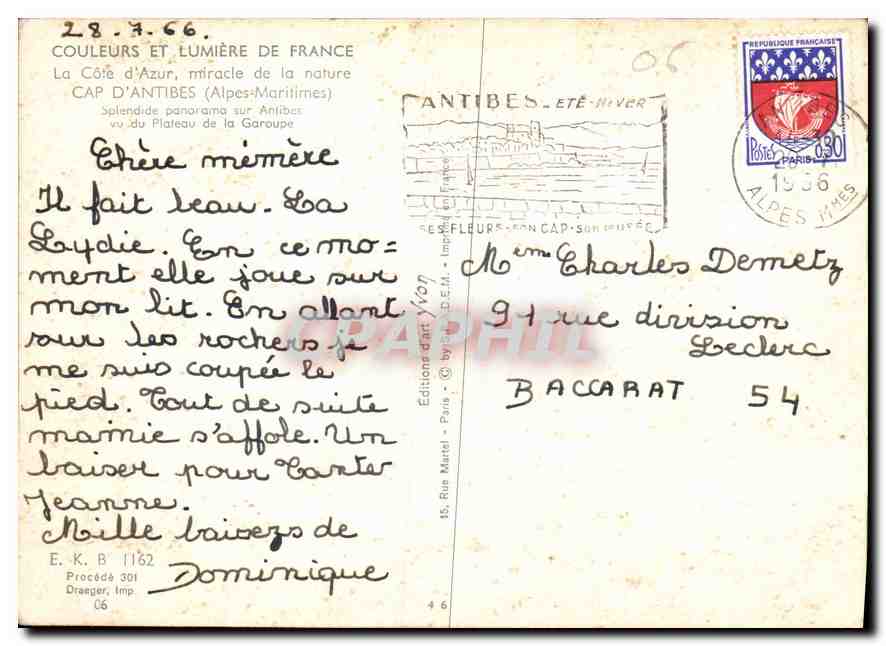 28-7-66.
COULEURS ET LUMIÈRE DE FRANCE
La Côte d'Azur, miracle de la nature
CAP D'ANTIBES (Alpes-Maritimes)
Splendide panorama sur Antibes
vu du Plateau de la Garoupe
Chère mémère
Il fait beau. La
Lydie. En ce mo=
ment elle joue sur
mon lit. En allant
sur les rochers je
me suis coupée le
pied. Tout de suite
mamie s'affole. Un
baiser pour Tante
Jeanne.
Mille baisers de
Dominique
E. K. B 1162
Procédé 301
Draeger, Imp.
06
46
15, Rue Martel - Paris - © by S.P.A.D.E.M. - Imprimé en France
Éditions d'art Yvon
06
ANTIBES - ETÉ - HIVER
SES FLEURS - SON CAP - SON MUSÉE
REPUBLIQUE FRANÇAISE
POSTES
0,30
PARIS
1966
ALPES MMES
Mem Charles Demetz
91 rue division
Leclerc
BACCARAT 54
CPAPHIL